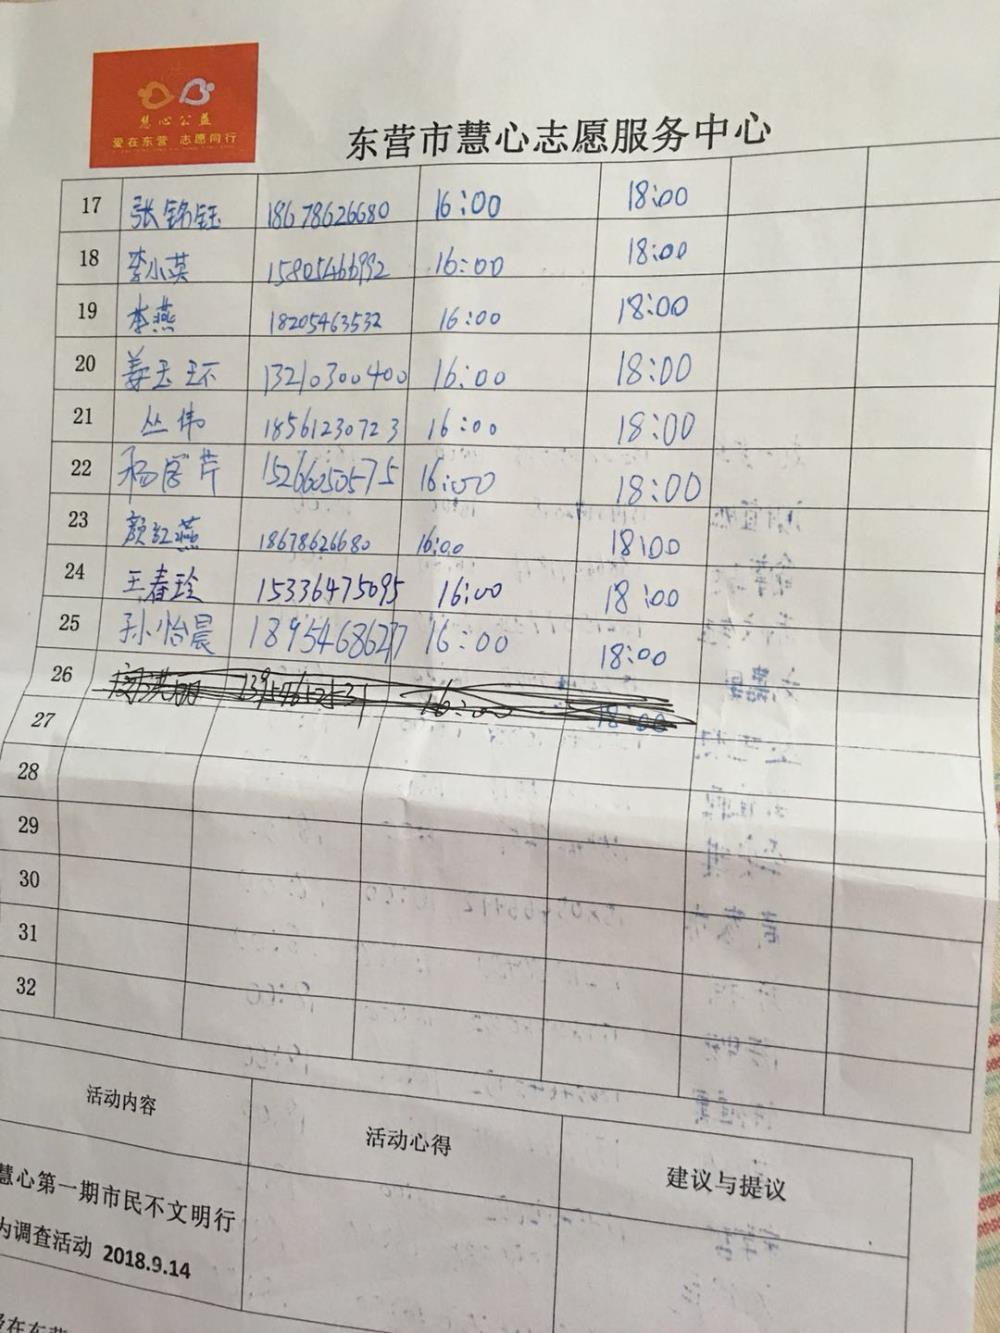 慧心公益
爱在东营 志愿同行
东营市慧心志愿服务中心
17 张铭钰 18678626680 16:00 18:00
18 李小英 15805466992 16:00 18:00
19 李燕 18205463532 16:00 18:00
20 姜玉环 13210300400 16:00 18:00
21 丛伟 18561230723 16:00 18:00
22 杨学芹 15266050575 16:00 18:00
23 颜红燕 18678626680 16:00 18:00
24 王春玲 15336475095 16:00 18:00
25 孙怡晨 18954686297 16:00 18:00
26 16:00 18:00
27
28
29
30
31
32
活动内容 活动心得 建议与提议
慧心第一期市民不文明行
为调查活动 2018.9.14
爱在东营